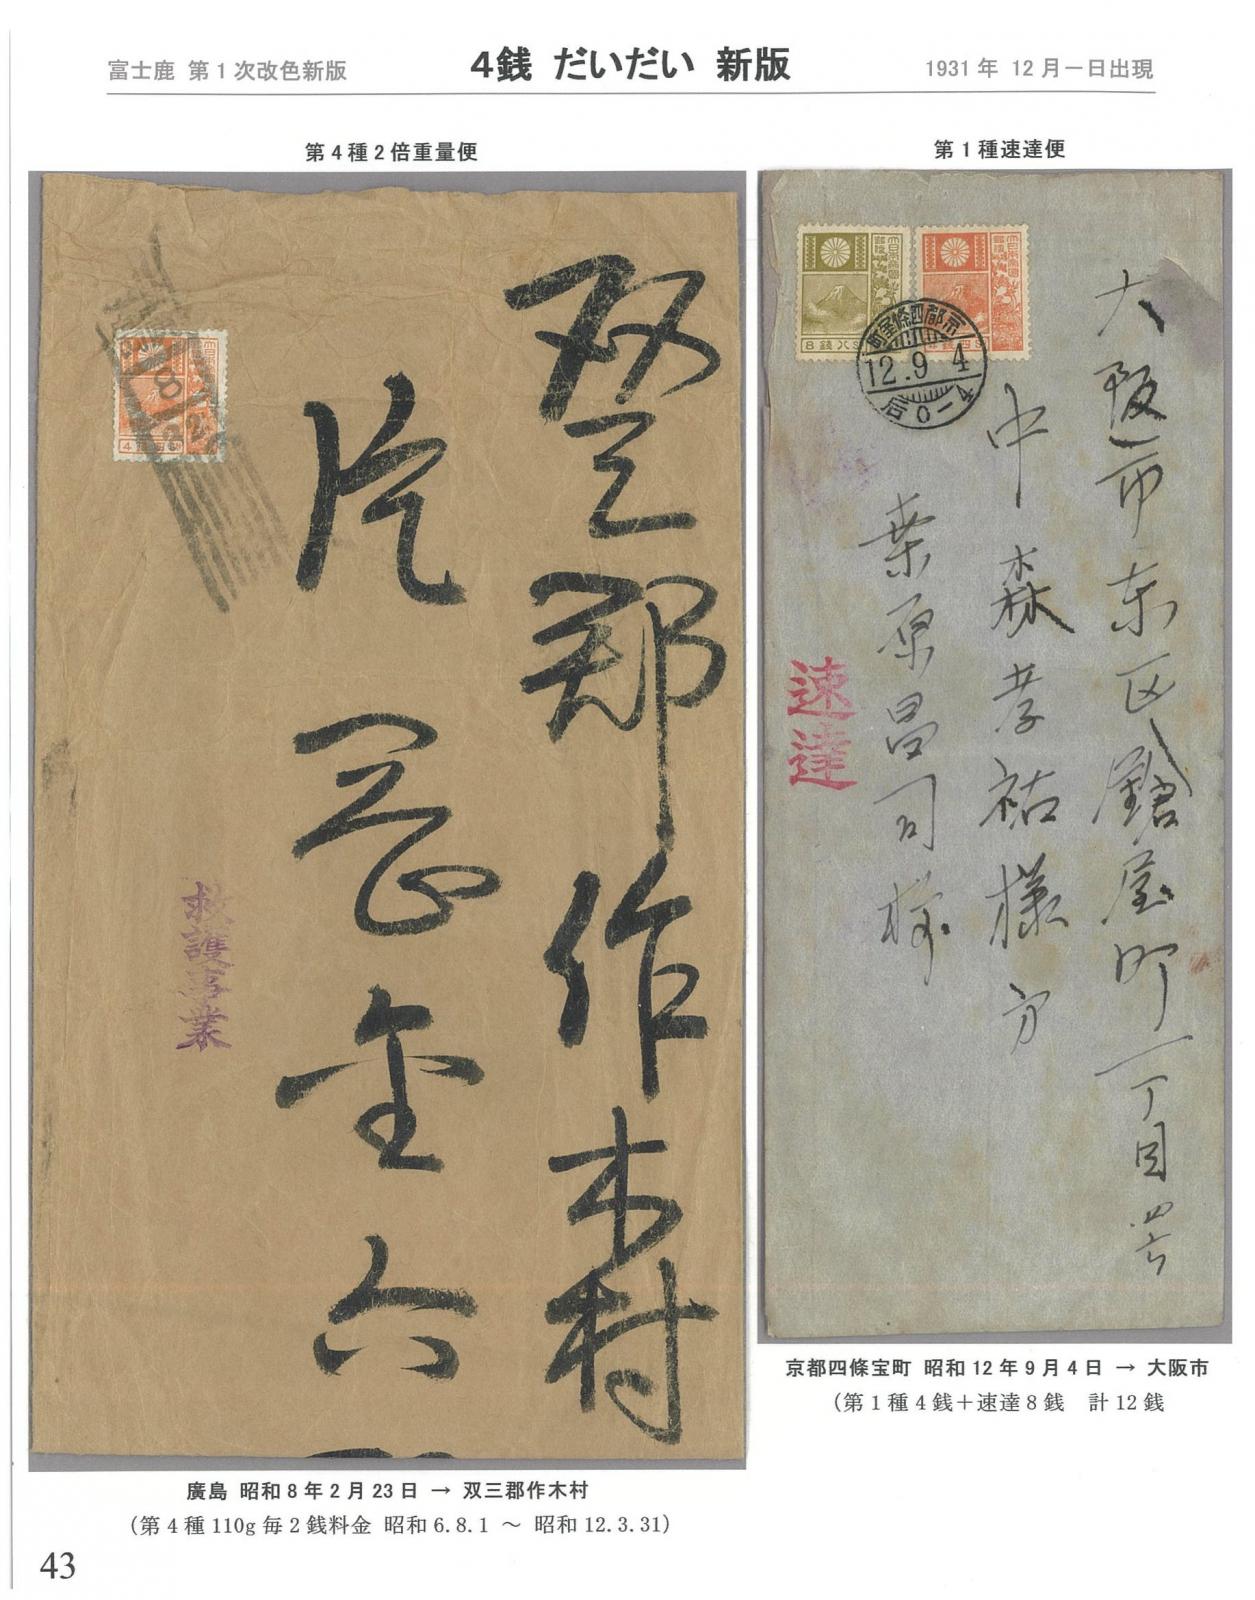 富士鹿 第1次改色新版
4銭 だいだい 新版
1931年 12月一日出現
第4種2倍重量便
第1種速達便
双三郡作木村
救護事業
8銭八
4銭四
京都四條室町
12.9.4
后0-4
大阪市東区鎗屋町一丁目四六
中森孝祐様方
桒原昌司様
速達
京都四條宝町 昭和12年9月4日 → 大阪市
(第1種4銭+速達8銭 計12銭
廣島 昭和8年2月23日 → 双三郡作木村
(第4種110g毎2銭料金 昭和6.8.1 〜 昭和12.3.31)
43